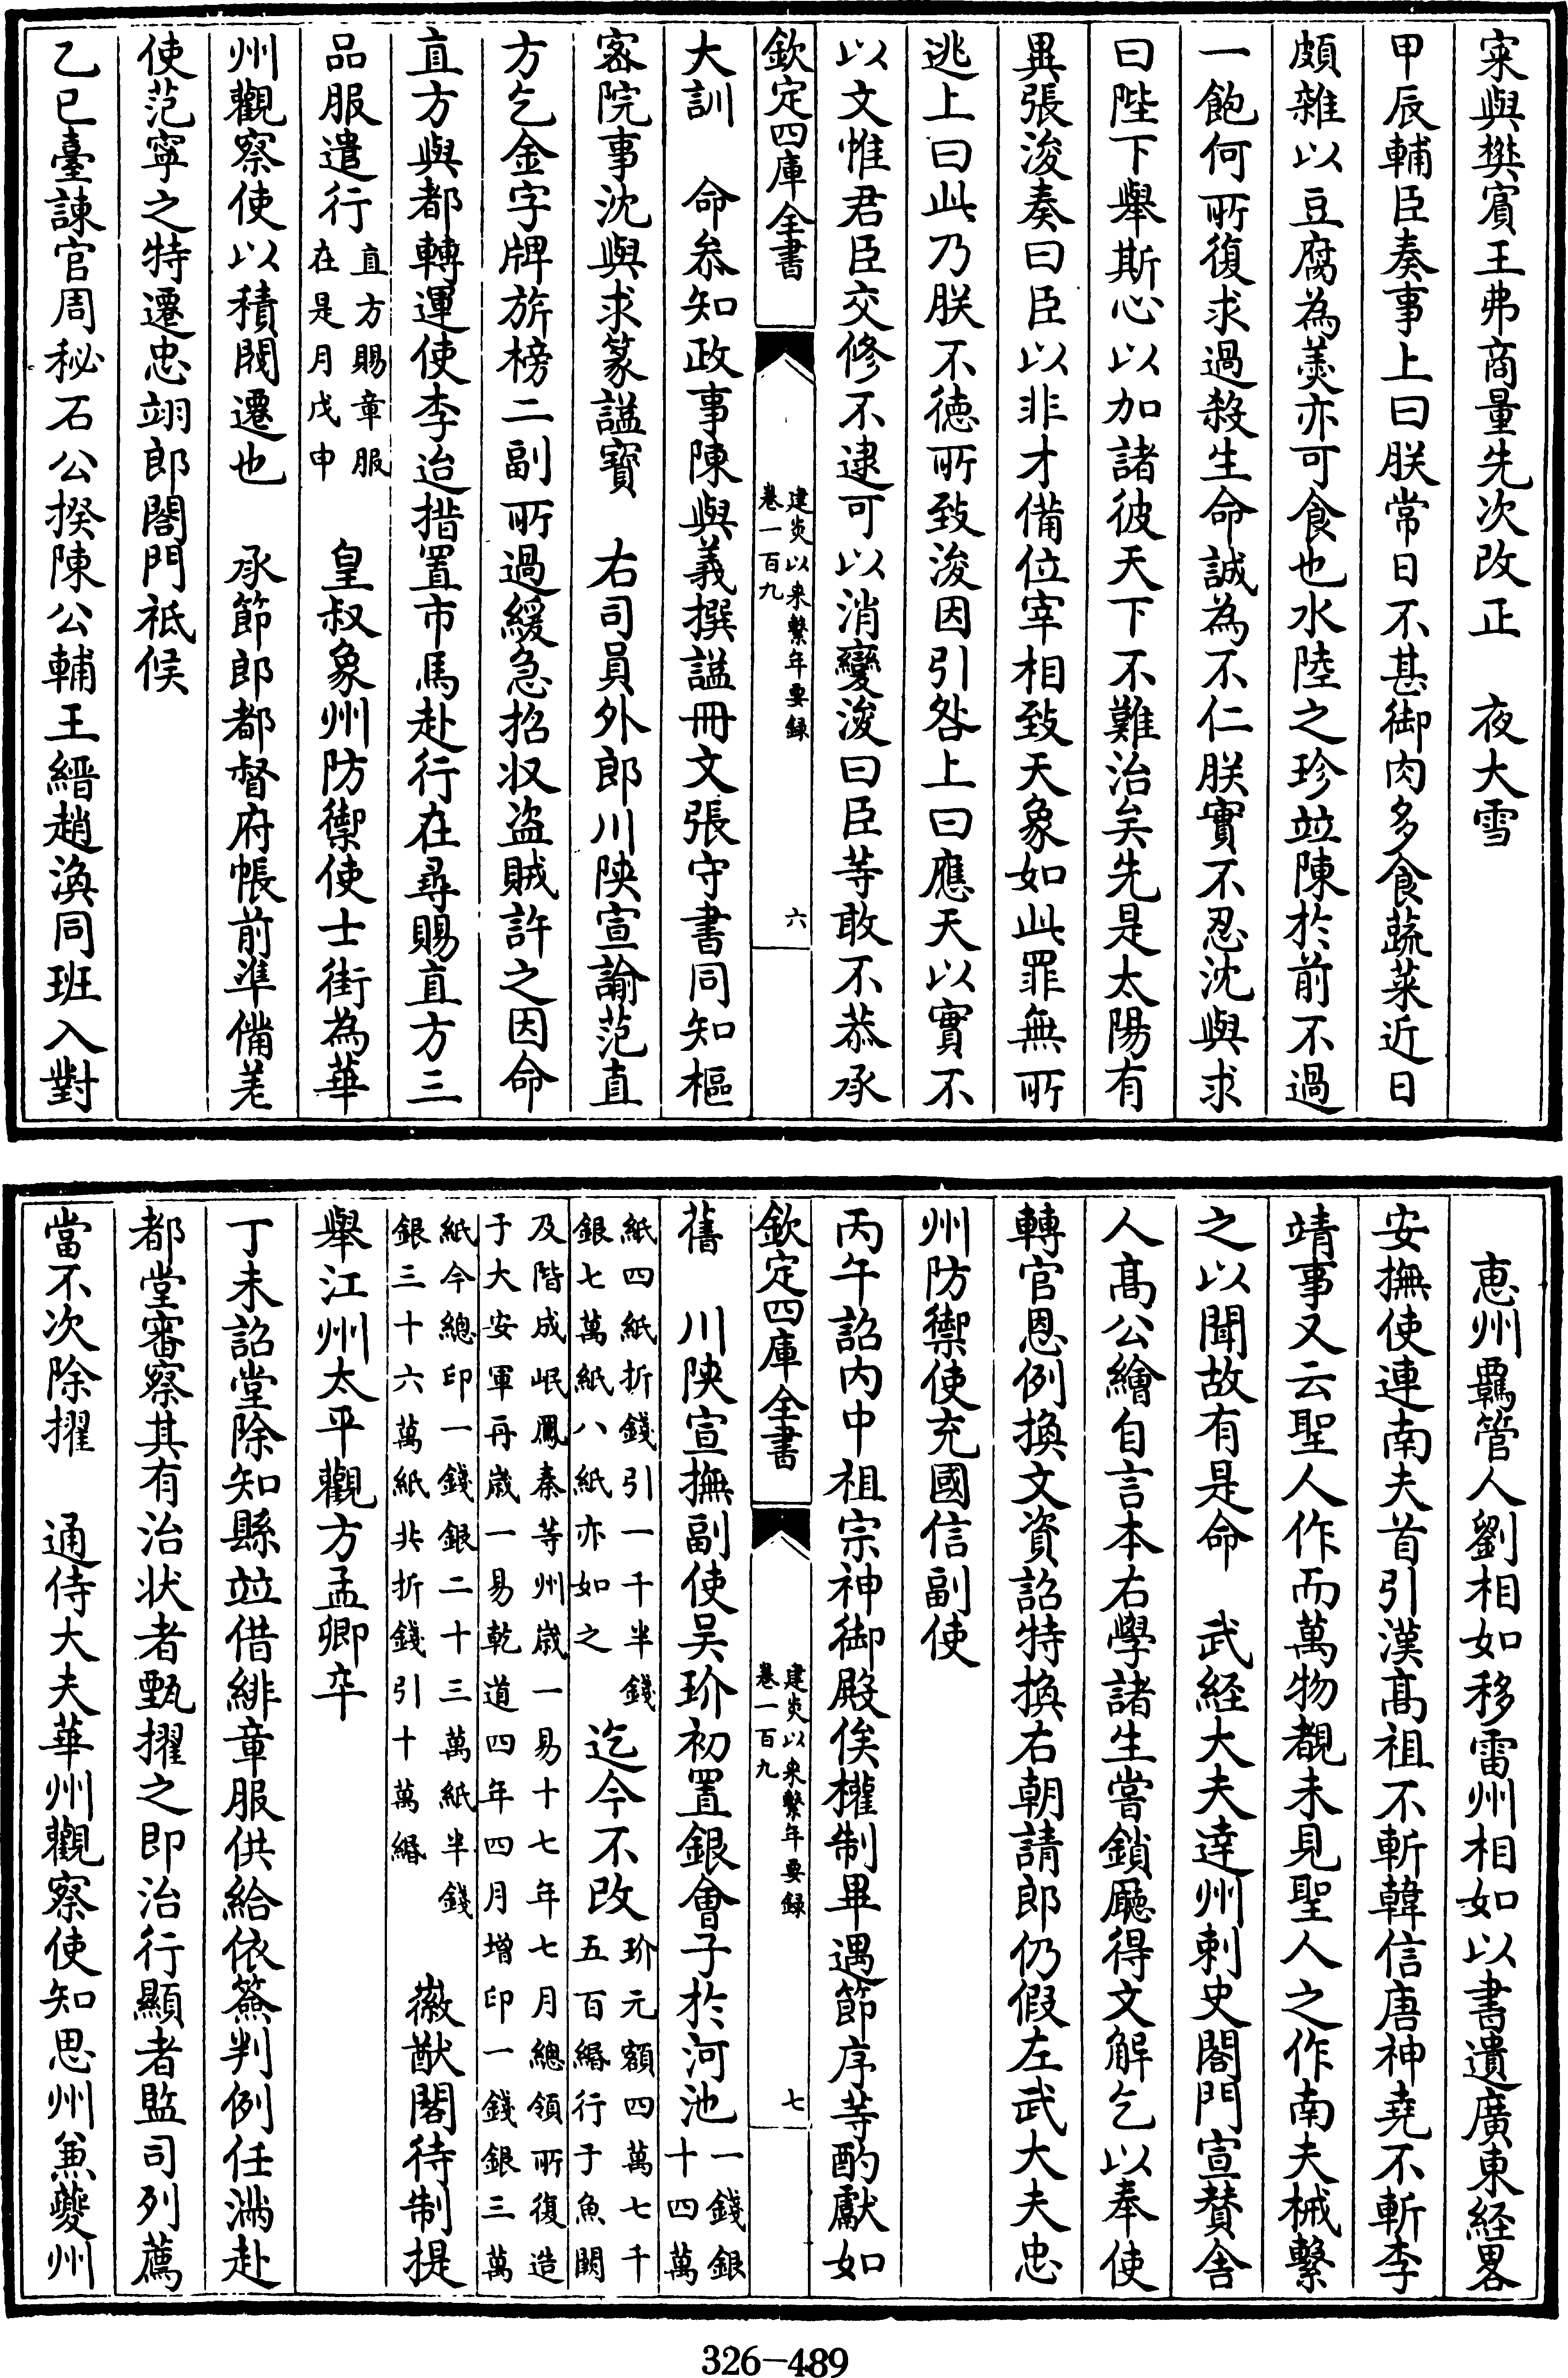 寀與樊賓王弗商量先次改正　夜大雪
甲辰輔臣奏事上曰朕常日不甚御肉多食蔬菜近日
頗雜以豆腐為羮亦可食也水陸之珍竝陳於前不過
一飽何所復求過殺生命誠為不仁朕實不忍沈與求
曰陛下舉斯心以加諸彼天下不難治矣先是太陽有
異張浚奏曰臣以非才備位宰相致天象如此罪無所
逃上曰此乃朕不徳所致浚因引咎上曰應天以實不
以文惟君臣交修不逮可以消變浚曰臣等敢不恭承
欽定四庫全書
建炎以来繫年要録
卷一百九
六
大訓　命叅知政事陳與義撰諡冊文張守書同知樞
宻院事沈與求篆諡寳　右司員外郎川陜宣諭范直
方乞金字牌旂榜二副所過緩急招収盗賊許之因命
直方與都轉運使李迨措置市馬赴行在尋賜直方三
品服遣行
直方賜章服
在是月戊申
皇叔象州防禦使士街為華
州觀察使以積閥遷也　承節郎都督府帳前凖備差
使范寧之特遷忠翊郎閤門祗候
乙巳臺諌官周秘石公揆陳公輔王縉趙渙同班入對
惠州羈管人劉相如移雷州相如以書遺廣東経畧
安撫使連南夫首引漢髙祖不斬韓信唐神堯不斬李
靖事又云聖人作而萬物覩未見聖人之作南夫械繫
之以聞故有是命　武経大夫達州刺史閤門宣賛舍
人髙公繪自言本右學諸生嘗鎖廳得文解乞以奉使
轉官恩例換文資詔特換右朝請郎仍假左武大夫忠
州防禦使充國信副使
丙午詔内中祖宗神御殿俟權制畢遇節序等酌獻如
欽定四庫全書
建炎以来繫年要録
卷一百九
七
舊　川陜宣撫副使吴玠初置銀會子於河池
一錢銀
十四萬
紙四紙折錢引一千半錢
銀七萬紙八紙亦如之
迄今不改
玠元額四萬七千
五百緡行于魚闗
及階成岷鳳秦等州嵗一易十七年七月總領所復造
于大安軍再嵗一易乾道四年四月增印一錢銀三萬
紙今總印一錢銀二十三萬紙半錢
銀三十六萬紙共折錢引十萬緡
徽猷閣待制提
舉江州太平觀方孟卿卒
丁未詔堂除知縣竝借緋章服供給依簽判例任滿赴
都堂審察其有治状者甄擢之即治行顯者監司列薦
當不次除擢　通侍大夫華州觀察使知思州兼夔州
326—489